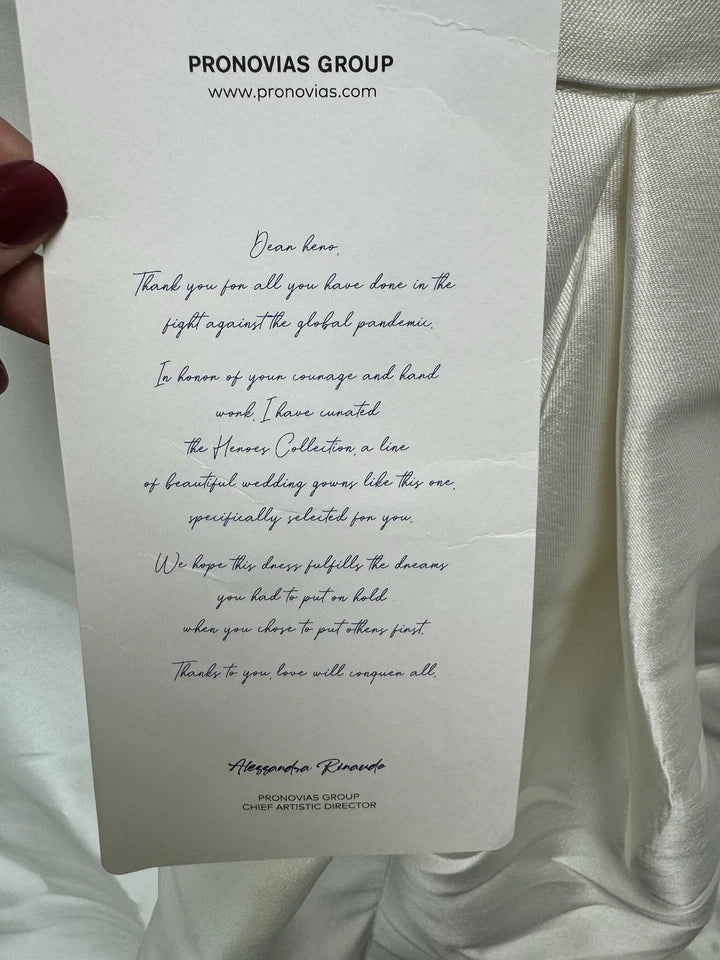 PRONOVIAS GROUP
www.pronovias.com
Dear hero,
Thank you for all you have done in the
fight against the global pandemic.
In honor of your courage and hard
work, I have curated
the Heroes Collection, a line
of beautiful wedding gowns like this one,
specifically selected for you.
We hope this dress fulfills the dreams
you had to put on hold
when you chose to put others first.
Thanks to you, love will conquer all.
Alessandra Rinaudo
PRONOVIAS GROUP
CHIEF ARTISTIC DIRECTOR